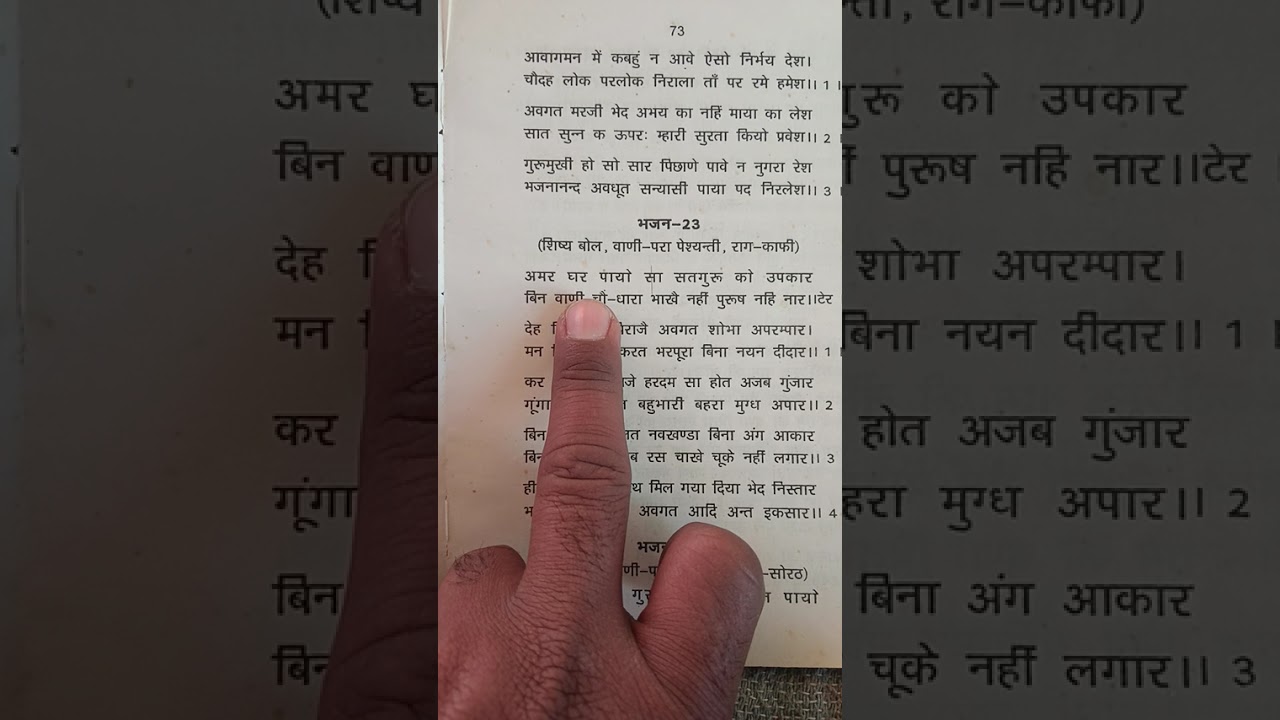 73
आवागमन में कबहुं न आवे ऐसो निर्भय देश।
चौदह लोक परलोक निराला ताँ पर रमे हमेश।। 1 ।
अवगत मरजी भेद अभय का नहिं माया का लेश
सात सुन्न क ऊपरः म्हारी सुरता कियो प्रवेश।। 2 ।
गुरूमुखी हो सो सार पिछाणे पावे न नुगरा रेश
भजनानन्द अवधूत सन्यासी पाया पद निरलेश।। 3 ।
भजन-23
(शिष्य बोल, वाणी-परा पेश्यन्ती, राग-काफी)
अमर घर पायो सा सतगुरू को उपकार
बिन वाणी चौ-धारा भाखै नहीं पुरूष नहि नार।।टेर
देह अवगत शोभा अपरम्पार।
मन करत भरपूरा बिना नयन दीदार।। 1 ।
कर हरदम सा होत अजब गुंजार
गूंगा बहुभारी बहरा मुग्ध अपार।। 2
बिन नवखण्डा बिना अंग आकार
बिन रस चाखे चूके नहीं लगार।। 3
मिल गया दिया भेद निस्तार
अवगत आदि अन्त इकसार।। 4
-सोरठ)
पायो